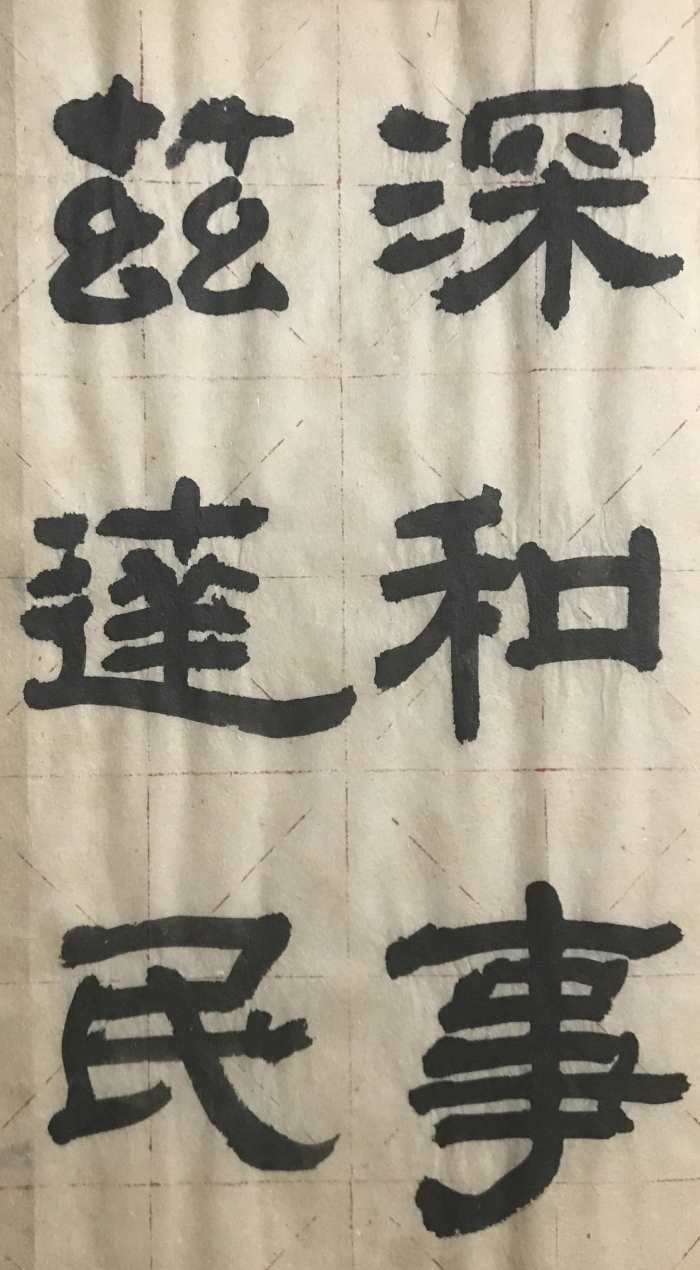 深和事
茲達民